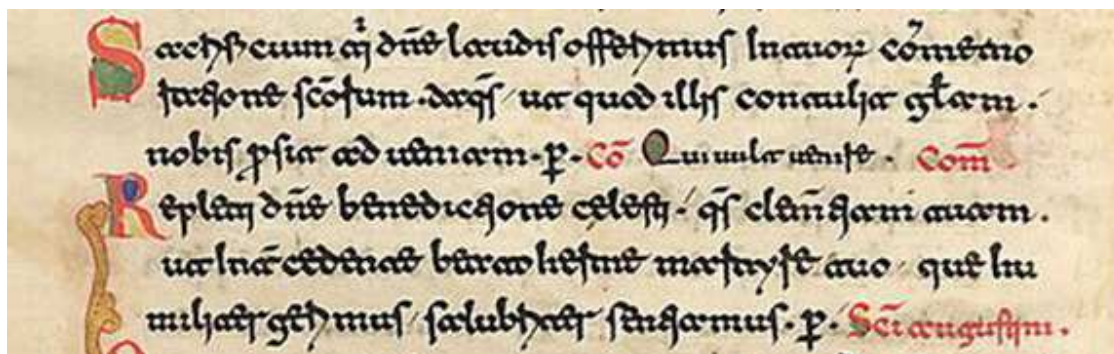 Sacrificium tⁱ dñe laudis offerimus In tuoꝝ cõmemo
ratione scõrum. da q̄s ut quod illis contulit glãm.
nobis ꝓsit ad ueniam. ꝑ. Cõ Qui uult uenire. Com̃
Repleti dñe benedictione celesti q̄s clem̃tiam tuam.
ut Int̃cedente beato herme martyre tuo que hu
militer gerimus salubriter sentiamus. ꝑ. Scĩ augustini.